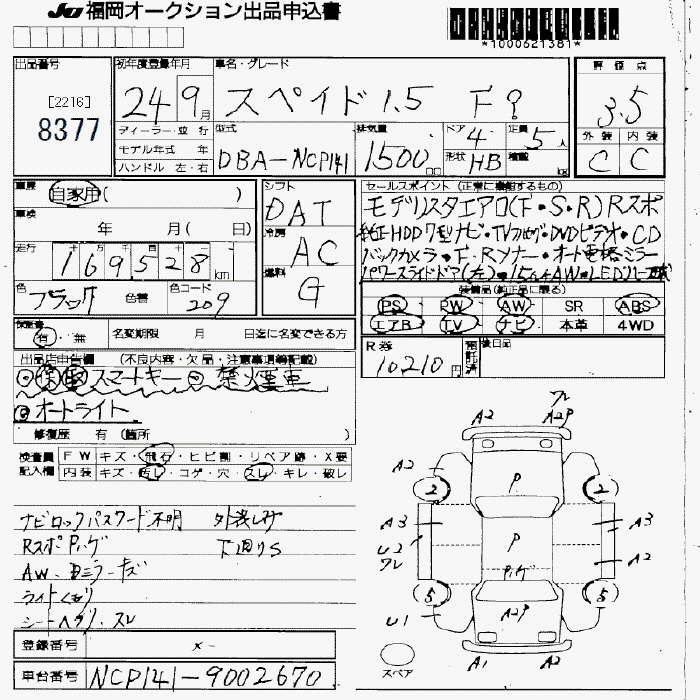 JU 福岡オークション出品申込書
*1000621381*
出品番号
[2216]
8377
初年度登録年月
24 9月
車名・グレード
スペイド1.5 F
評価点
3.5
外装 内装
C C
ディーラー・並行
モデル年式 年
ハンドル 左・右
型式
DBA-NCP141
排気量
1500 CC
ドア 4
形状 HB
定員 5人
積載 kg
車歴
自家用( )
車検
年 月( 日)
走行
169528 km
色
ブラック
色替
色コード
209
シフト
DAT
冷房
AC
燃料
G
セールスポイント (正常に機能するもの)
モデリスタエアロ(F・S・R)Rスポ
純正HDD7型ナビ・TVフルセグ・DVDビデオ・CD
バックカメラ・F・Rソナー・オート電格ミラー
パワースライドドア(左)・15インチAW・LED
装備品(純正品に限る)
PS PW AW SR ABS
エアB TV ナビ 本革 4WD
保証書
有・無
名変期限 月 日迄に名変できる方
R券
10210円
預託済
後日品
出品店申告欄 (不良内容・欠品・注意事項等記載)
◎保取スマートキー◎禁煙車
◎オートライト
修復歴 有 (箇所 )
検査員記入欄
FW キズ・飛石・ヒビ割・リペア跡・X要
内装 キズ・汚レ・コゲ・穴・スレ・キレ・破レ
ナビロックパスワード不明 外装
RスポPハゲ 下廻りS
AW・ミラーキズ
ライトくもり
シートヘタリ・スレ
登録番号
×-
車台番号
NCP141-9002670
A2 フレ A2P
A2 2 P 2
A3 A3
U2 フレ P A2
Pハゲ
5 5
U1 A2P
A1 A2
スペア